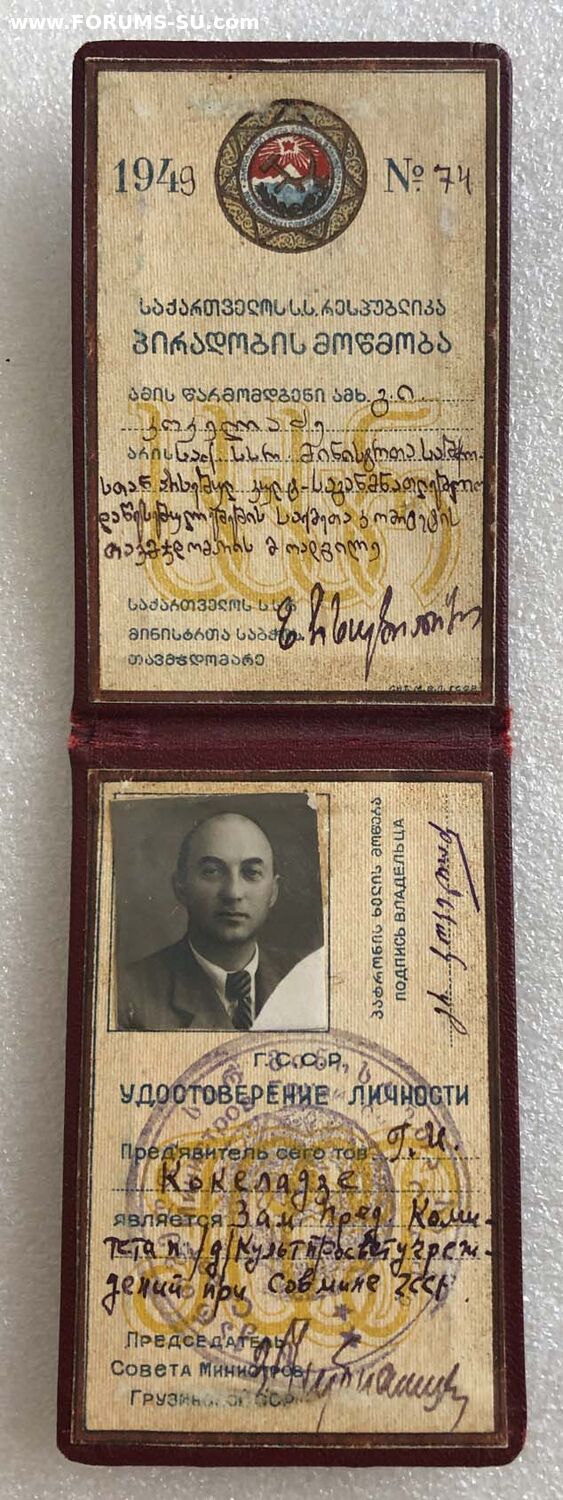 www.FORUMS-SU.com
1949
№ 74
ᲡᲐᲥᲐᲠᲗᲕᲔᲚᲝᲡ Ს.Ს. ᲠᲔᲡᲞᲣᲑᲚᲘᲙᲐ
ᲞᲘᲠᲐᲓᲝᲑᲘᲡ ᲛᲝᲬᲛᲝᲑᲐ
ᲐᲛᲘᲡ ᲬᲐᲠᲛᲝᲛᲓᲒᲔᲜᲘ ᲐᲛᲮ. გ. ი.
კოკელაძე
ᲐᲠᲘᲡ საქ. სსრ მინისტრთა საბჭო-
სთან არსებულ კულტ-საგანმანათლებლო
დაწესებულებების საქმეთა კომიტეტის
თავმჯდომარის მოადგილე
ᲡᲐᲥᲐᲠᲗᲕᲔᲚᲝᲡ Ს.Ს.Რ.
ᲛᲘᲜᲘᲡᲢᲠᲗᲐ ᲡᲐᲑᲭᲝᲡ
ᲗᲐᲕᲛᲯᲓᲝᲛᲐᲠᲔ
ᲞᲐᲢᲠᲝᲜᲘᲡ ᲮᲔᲚᲘᲡ ᲛᲝᲬᲔᲠᲐ
ПОДПИСЬ ВЛАДЕЛЬЦА
Г.С.С.Р.
УДОСТОВЕРЕНИЕ ЛИЧНОСТИ
Пред'явитель сего тов. Г. И.
Кокеладзе
является Зам. Пред. Коми-
тета п/д/культпросветучреж-
дений при Совмине ГССР
Председатель
Совета Министров
Грузинской ССР